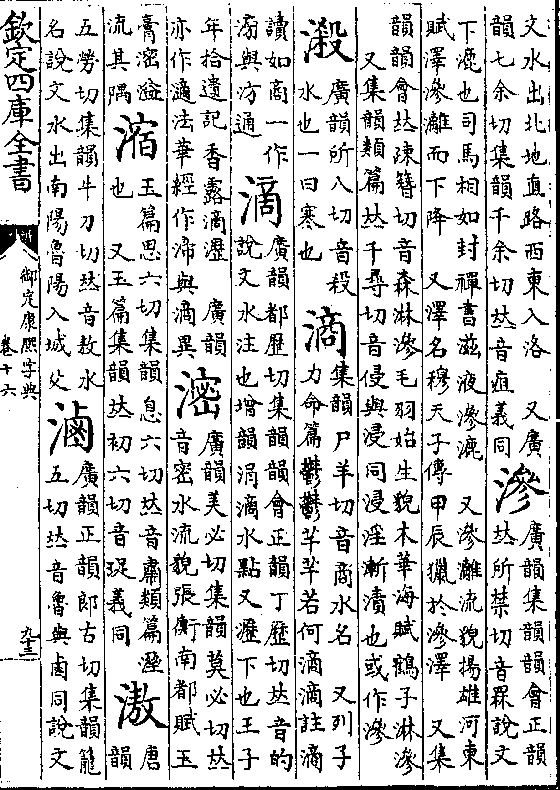 文水出北地直路西東入洛　又廣
韻七余切集韻千余切𠀤音疽義同
滲
廣韻集韻韻會正韻
𠀤所禁切音罧說文
下漉也司馬相如封禪書滋液滲漉　又滲離流貌揚雄河東
賦澤滲離而下降　又澤名穆天子傳甲辰獵於滲澤　又集
韻韻會𠀤疎簪切音森淋滲毛羽始生貌木華海賦鶴子淋滲
又集韻類篇𠀤千尋切音侵與浸同浸淫漸漬也或作滲
廣韻所八切音殺
水也一曰寒也
滳
集韻尸羊切音商水名　又列子
力命篇鬱鬱芊芊若何滴滴註滴
讀如商一作
滂與汸通
滴
廣韻都歷切集韻韻會正韻丁歷切𠀤音的
說文水注也增韻涓滴水點又瀝下也王子
年拾遺記香露滴瀝　廣韻
亦作適法華經作渧與滴異
滵
廣韻美必切集韻莫必切𠀤
音密水流貌張衡南都賦玉
膏滵溢
流其隅
㴼
玉篇思六切集韻息六切𠀤音肅類篇瀝
也　又玉篇集韻𠀤初六切音珿義同
滶
唐
韻
五勞切集韻牛刀切𠀤音敖水
名說文水出南陽魯陽入城父
滷
廣韻正韻郎古切集韻籠
五切𠀤音魯與鹵同說文
欽定四庫全書
御定康熙字典
卷十六